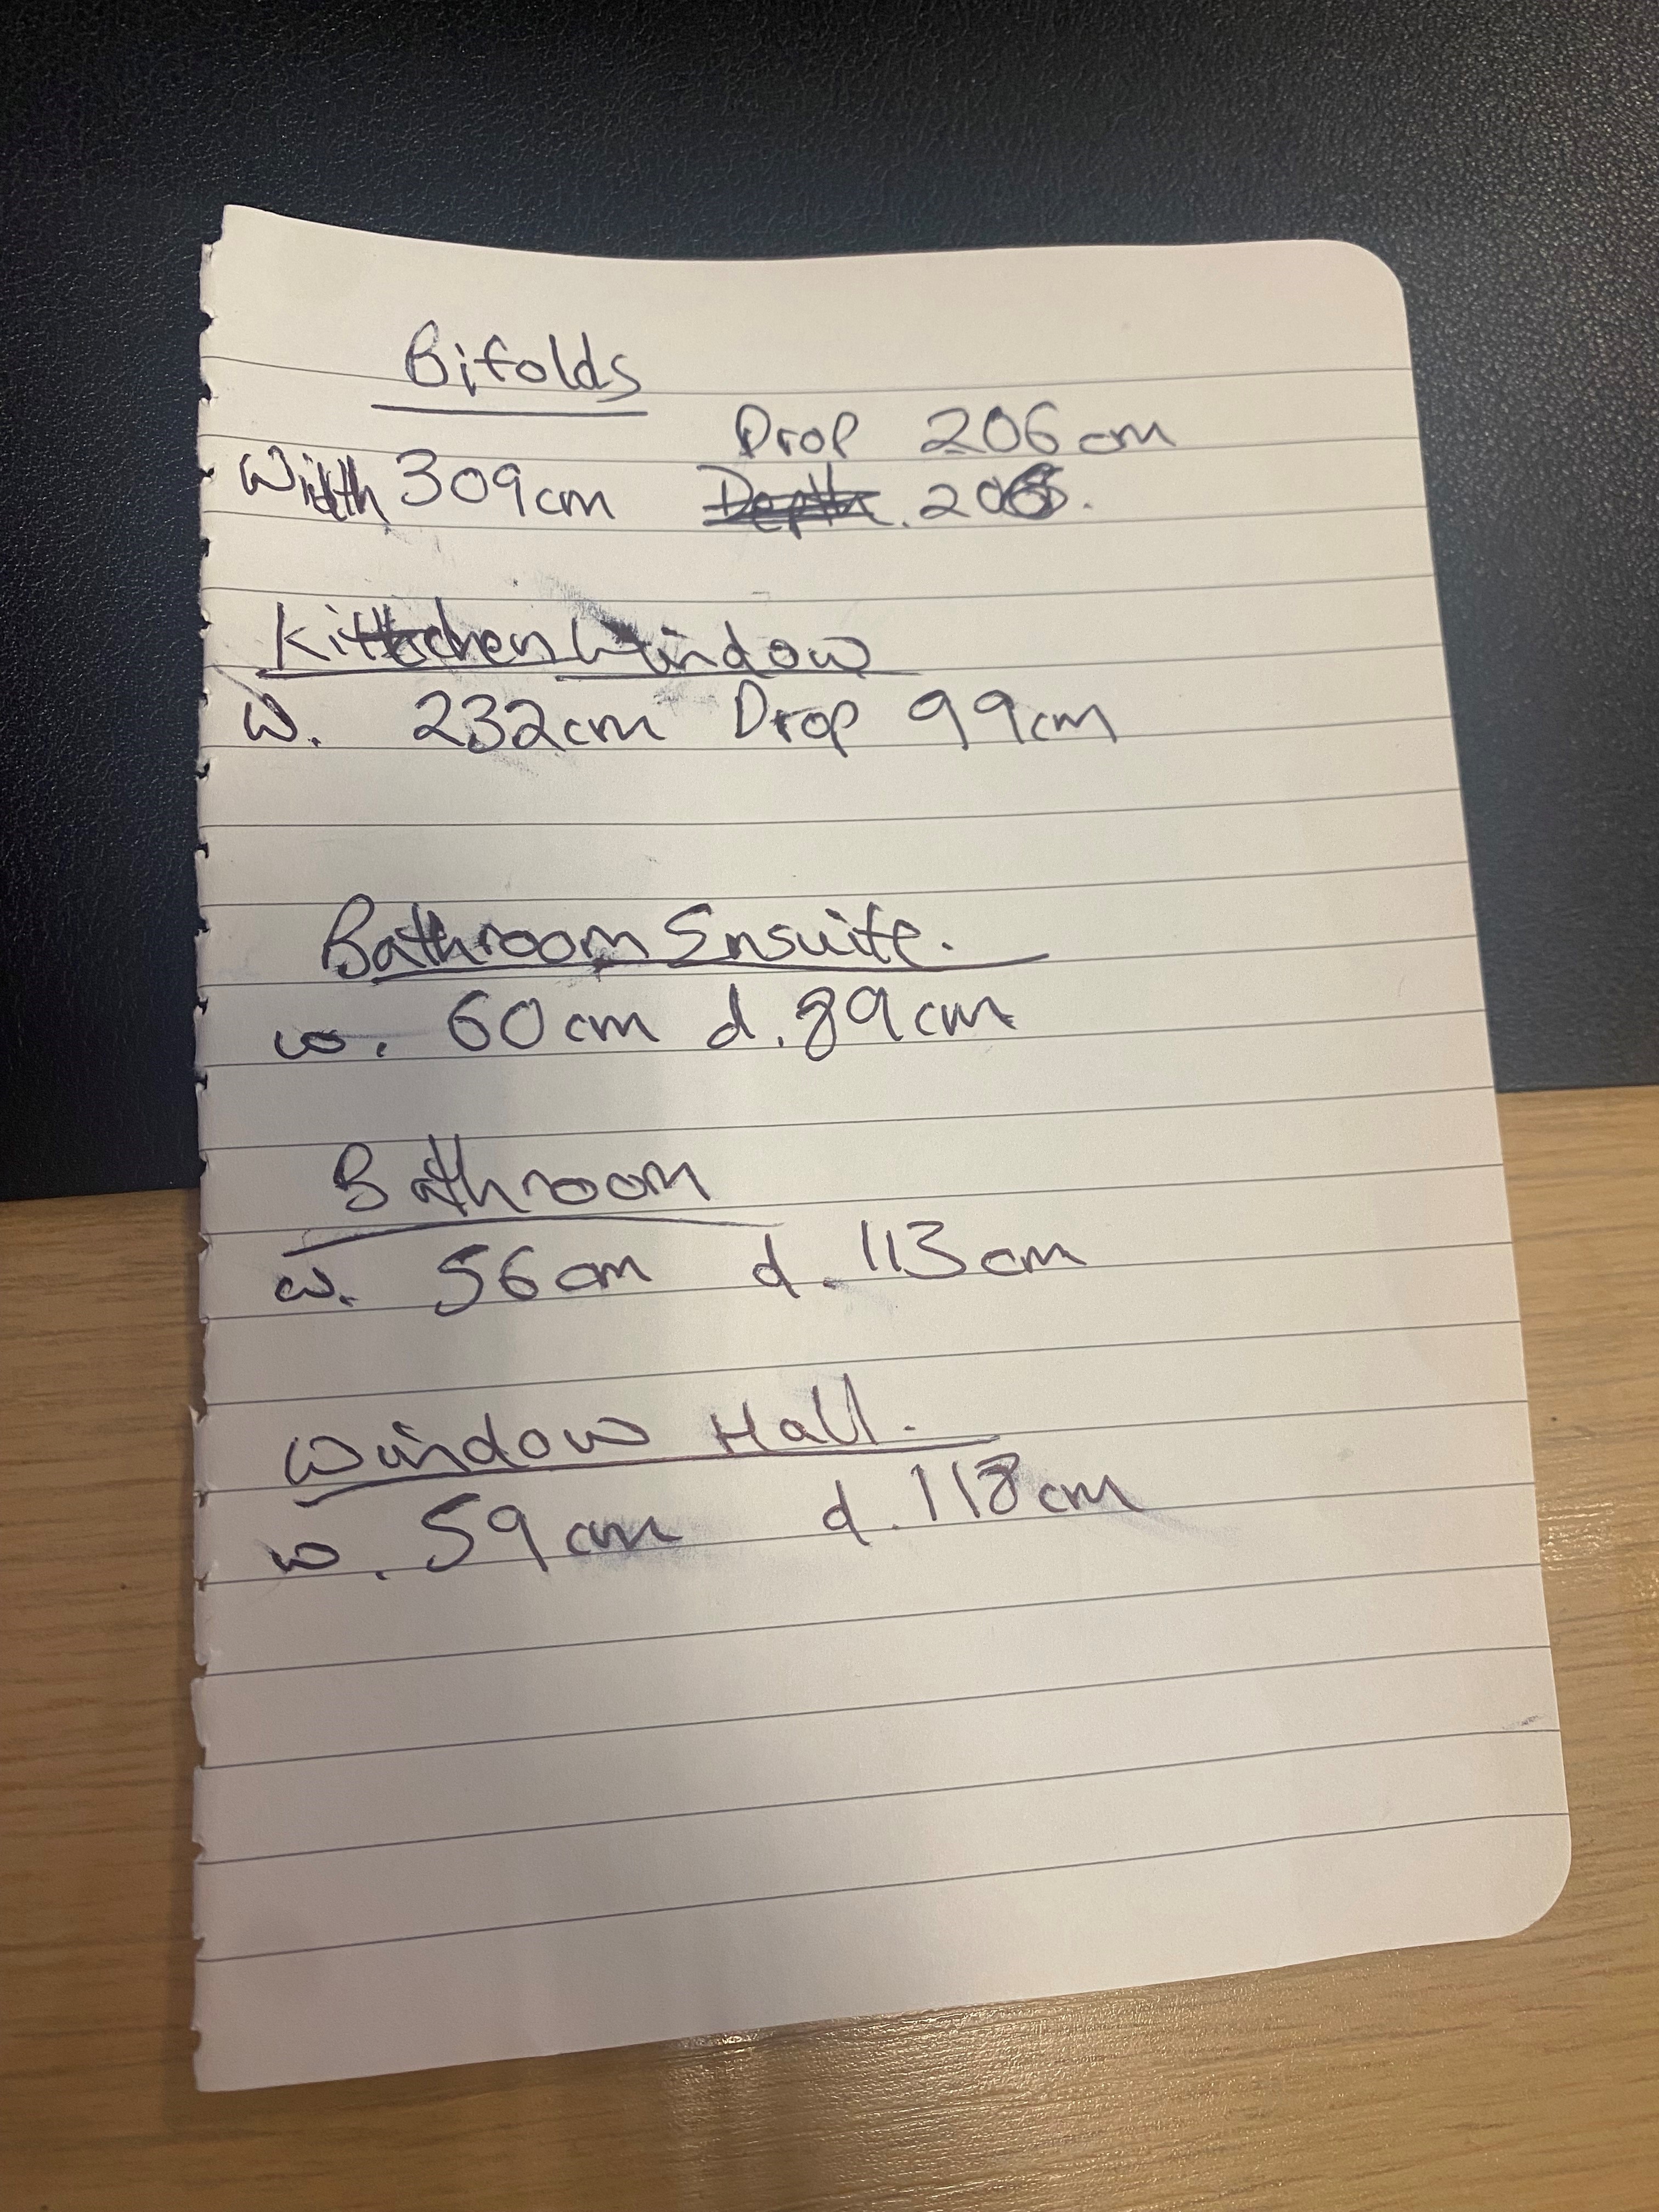 Bifolds
Drop 206cm
Width 309cm 206.
Kitchen Window
W. 232cm Drop 99cm
Bathroom Ensuite.
w. 60cm d. 89cm
Bathroom
w. 56cm d. 113cm
Window Hall.
w. 59cm d. 118cm